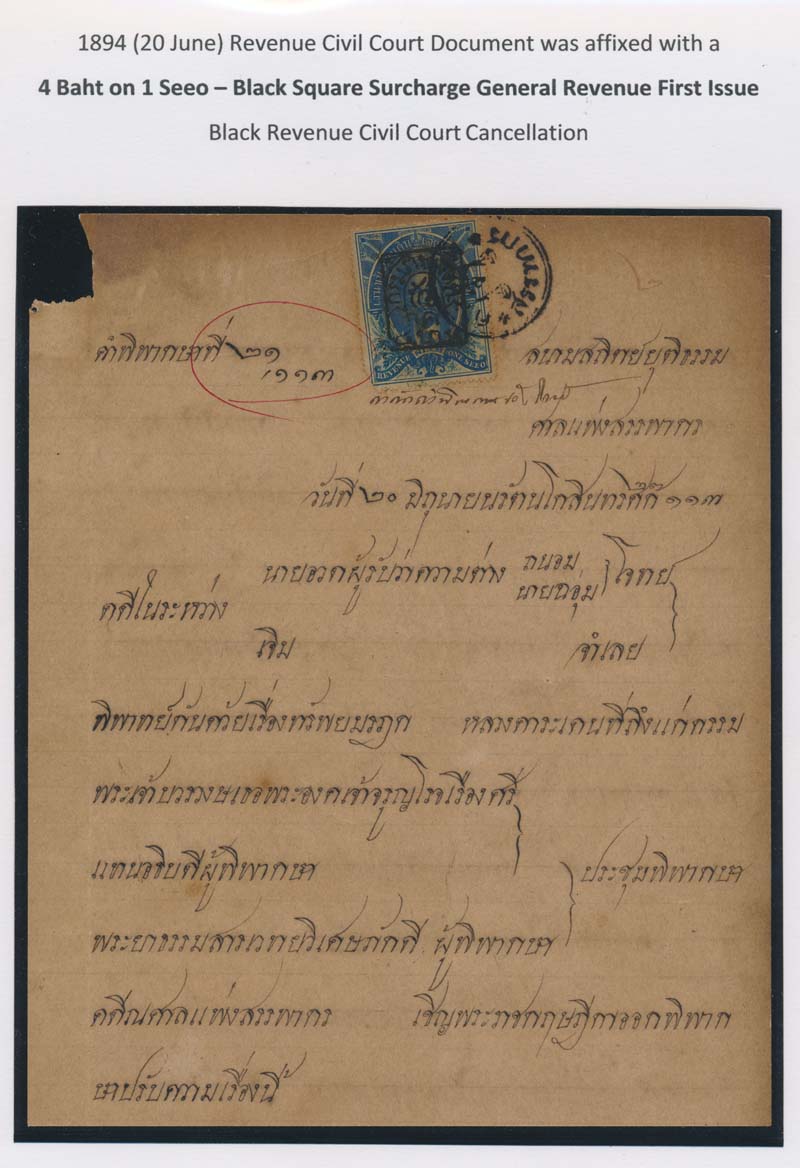 1894 (20 June) Revenue Civil Court Document was affixed with a
4 Baht on 1 Seeo – Black Square Surcharge General Revenue First Issue
Black Revenue Civil Court Cancellation
REVENUE ONE SEEO
คำพิพากษาที่ ๒๑ สนามสถิตย์ยุติธรรม
๑๑๓
ศาลแพ่งสรรพากร
วันที่ ๒๐ มิถุนายน รัตนโกสินทรศก๊ ๑๑๓
ผู้รับว่าความต่าง ถนอม โจทย
คดีในระหว่าง
เจิม จำเลย
พิพาทย์กันด้วยเรื่องทรัพยมรฎก
พระเจ้าบวรวงษเธอพระองคเจ้าจรูญโรจเรืองศรี
แทนอธิบดีผู้พิพากษา ประชุมพิพากษา
พระยาธรรมสารเวทยวิเศษภักดี ผู้พิพากษา
คดีณศาลแพ่งสรรพากร เชิญพระราชกฤษฎีกาออกพิพาก
ษาปรับความเรื่องนี้